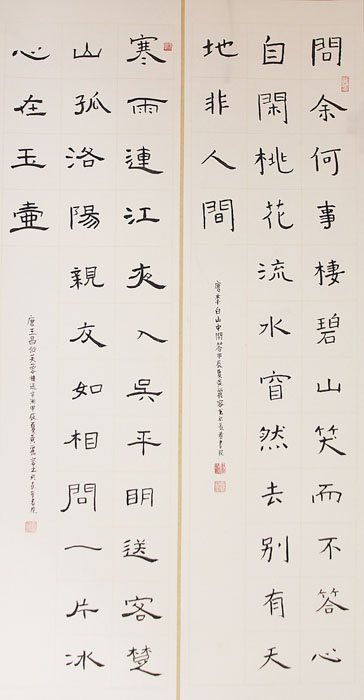 問余何事棲碧山笑而不答心
自閑桃花流水窅然去别有天
地非人間
唐李白山中問答甲辰夏黄
寒雨連江夜入吳平明送客楚
山孤洛陽親友如相問一片冰
心在玉壷
唐王昌齡芙蓉樓送辛漸甲辰夏黄